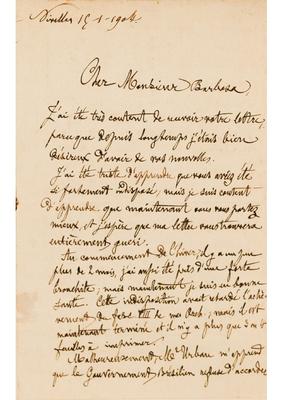 Nivelles 15-1-1904.
Cher Monsieur Barbosa,
J'ai été très content de recevoir votre lettre,
parce que depuis longtemps j'étais bien
désireux d'avoir de vos nouvelles.
J'ai été triste d'apprendre que vous aviez été
si fortement indisposé, mais je suis content
d'apprendre que maintenant vous vous portez
mieux, et j'espère que ma lettre vous trouvera
entièrement guéri.
Au commencement de l'hiver, il y a un peu
plus de 2 mois, j'ai aussi été pris d'une forte
bronchite, mais maintenant je suis en bonne
santé. Cette indisposition avait retardé l'achè-
vement du fasc. III de mes Rech. mais il est
maintenant terminé et il n'y a plus que 3 ou 4
feuilles à imprimer.
Malheureusement, Mr Urban m'apprend
que le Gouvernement Brésilien refuse d'accorder